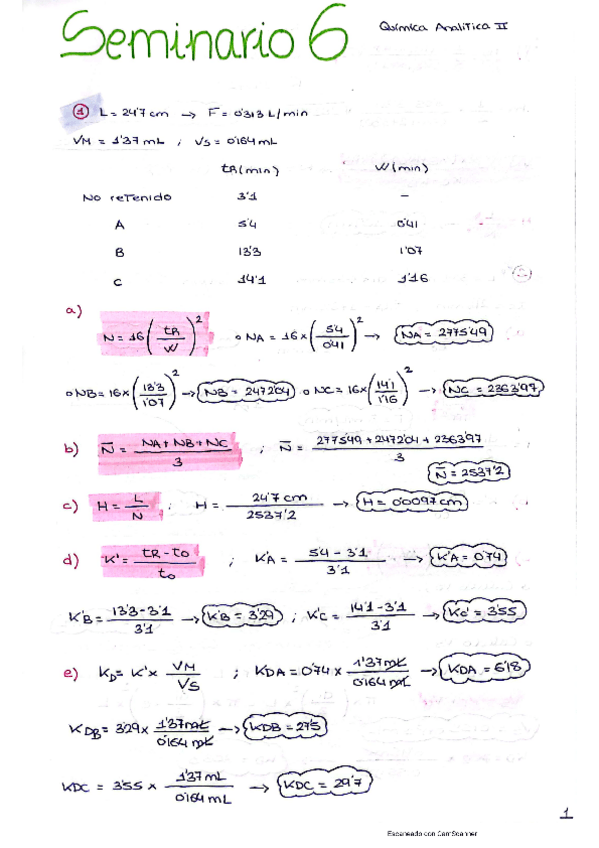 Seminario 6 Química Analítica II
① L = 24'7 cm → F = 0'313 L/min
VM = 1'37 mL ; VS = 0'164 mL
tR (min) W (min)
No retenido 3'1 –
A 5'4 0'41
B 13'3 1'07
C 14'1 1'16
a) N = 16 (tR/W)² ∘ NA = 16 × (5'4/0'41)² → NA = 2775'49
∘ NB = 16 × (13'3/1'07)² → NB = 2472'04 ∘ NC = 16 × (14'1/1'16)² → NC = 2363'97
b) N̄ = (NA + NB + NC)/3 ; N̄ = (2775'49 + 2472'04 + 2363'97)/3
N̄ = 2537'2
c) H = L/N ; H = 24'7 cm/2537'2 → H = 0'0097 cm
d) K' = (tR - t0)/t0 ; K'A = (5'4 - 3'1)/3'1 → K'A = 0'74
K'B = (13'3 - 3'1)/3'1 → K'B = 3'29 ; K'C = (14'1 - 3'1)/3'1 → KC' = 3'55
e) KD = K' × VM/VS ; KDA = 0'74 × 1'37 mL/0'164 mL → KDA = 6'18
KDB = 3'29 × 1'37 mL/0'164 mL → KDB = 27'5
KDC = 3'55 × 1'37 mL/0'164 mL → KDC = 29'7
1
Escaneado con CamScanner